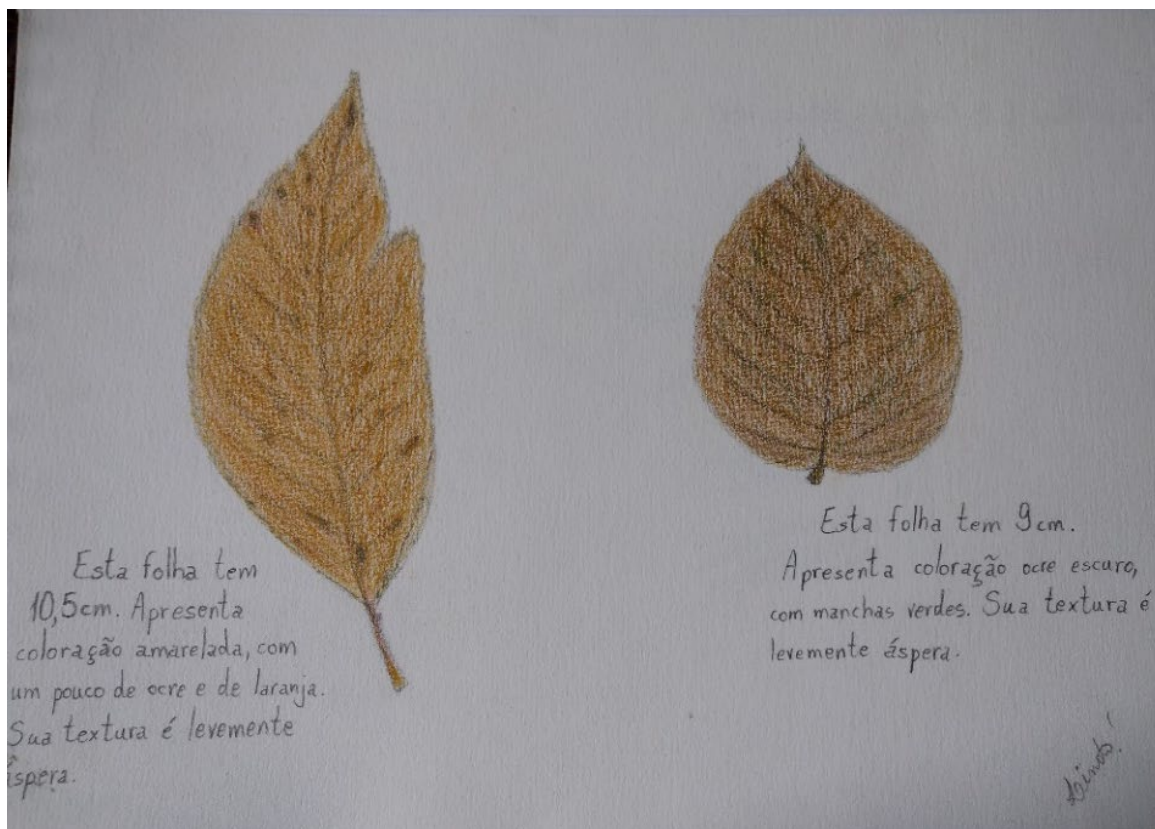 Esta folha tem
10,5cm. Apresenta
coloração amarelada, com
um pouco de ocre e de laranja.
Sua textura é levemente
áspera.
Esta folha tem 9cm.
Apresenta coloração ocre escuro,
com manchas verdes. Sua textura é
levemente áspera.
Lindo!